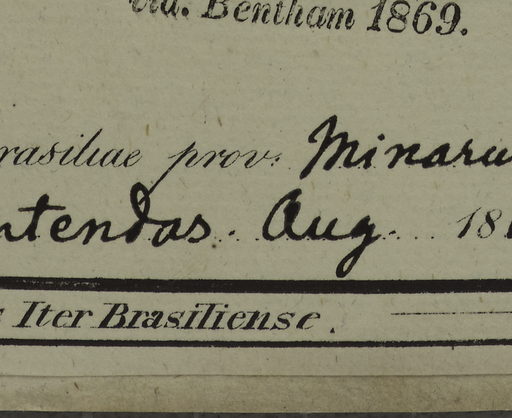 vid. Bentham 1869.
rasiliae prov. Minaru
ntendas. Aug. 181
Iter Brasiliense.